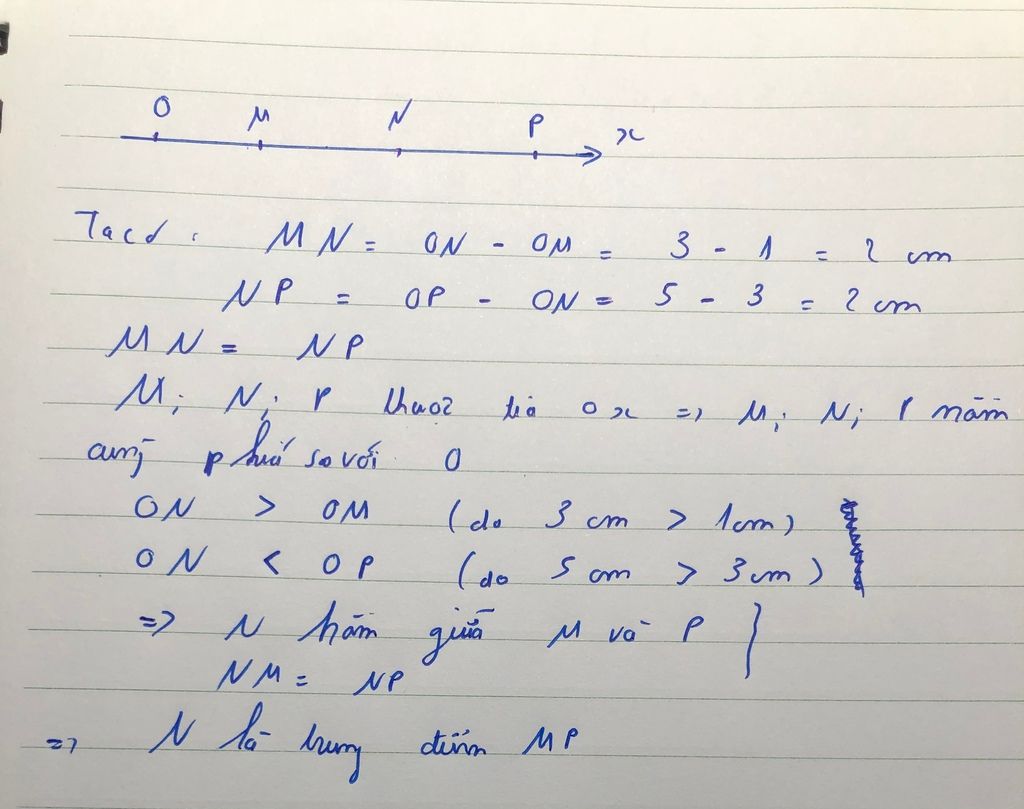 O M N P x
Ta có : MN = ON - OM = 3 - 1 = 2 cm
NP = OP - ON = 5 - 3 = 2 cm
MN = NP
M; N; P thuộc tia Ox => M; N; P nằm
cùng phía so với O
ON > OM (do 3 cm > 1cm)
ON < OP (do 5 cm > 3cm)
=> N nằm giữa M và P }
NM = NP
=> N là trung điểm MP